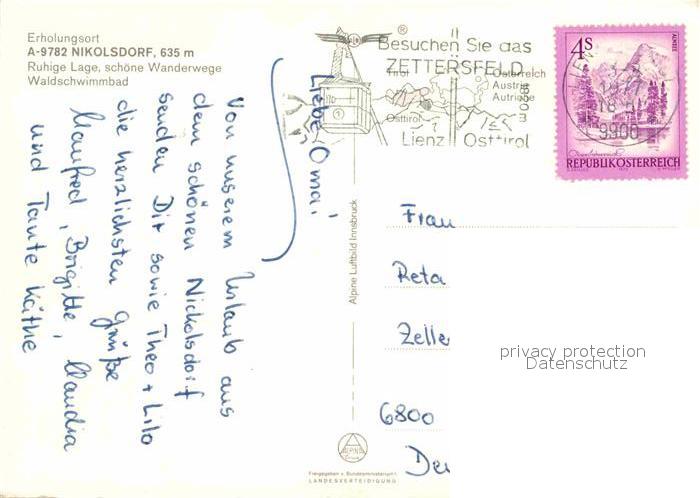 Erholungsort
A-9782 NIKOLSDORF, 635 m
Ruhige Lage, schöne Wanderwege
Waldschwimmbad
Liebe Omai
Von unserem Urlaub aus
dem schönen Nickolsdorf
senden Dir sowie Theo + Lilo
die herzlichsten Grüße
Manfred, Brigitte, Claudia
und Tante Käthe
Alpine Luftbild Innsbruck
ALPINE
Freigegeben v. Bundesministerium f.
LANDESVERTEIDIGUNG
®
Besuchen Sie das
ZETTERSFELD
Tirol
Österreich
Austria
Autriche
Osttirol
Lienz Osttirol
9900
4S
ALMSEE
REPUBLIK ÖSTERREICH
Frau
Reta
Zeller
6800
privacy protection
Datenschutz